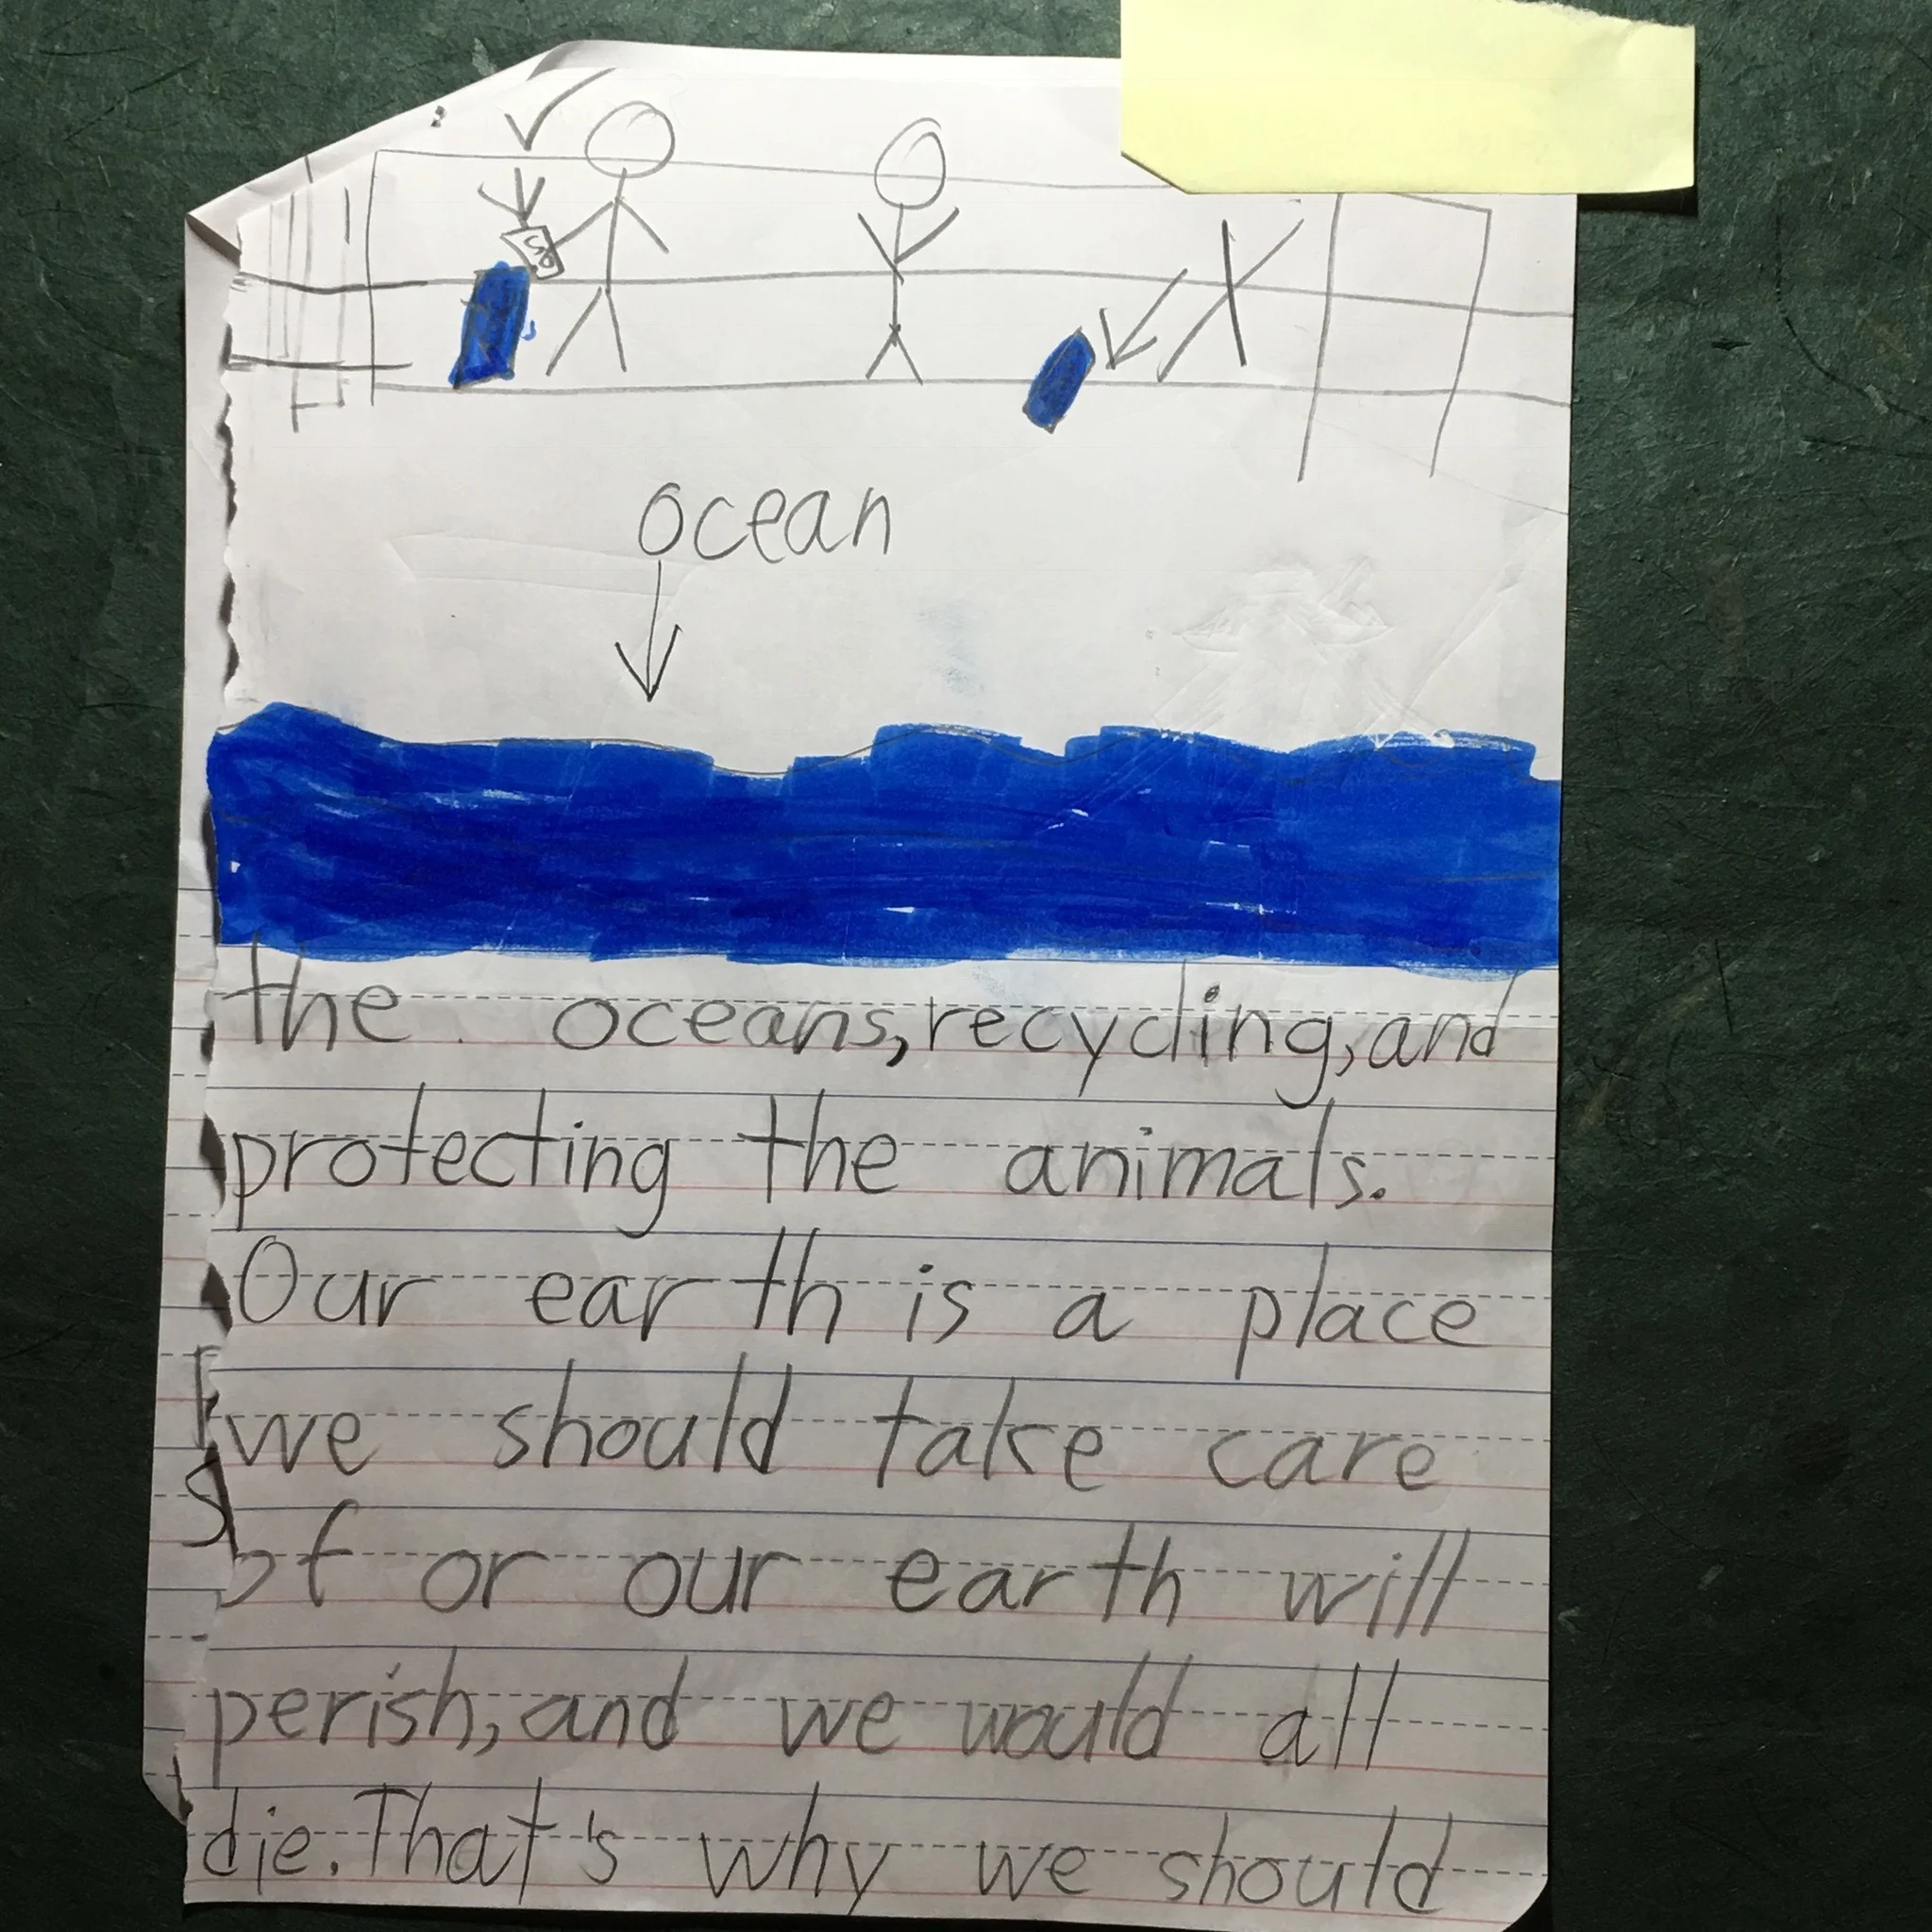 ocean
the oceans, recycling, and
protecting the animals.
Our earth is a place
we should take care
of or our earth will
perish, and we would all
die. That's why we should